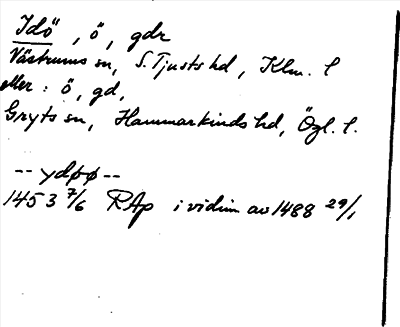 Idö, ö, gdr
Västrums sn, S. Tjusts hd, Klm. l
eller: ö, gd,
Gryts sn, Hammarkinds hd, Ögl. l.
-- ydøø --
1453 7/6 RAp i vidim av 1488 29/1